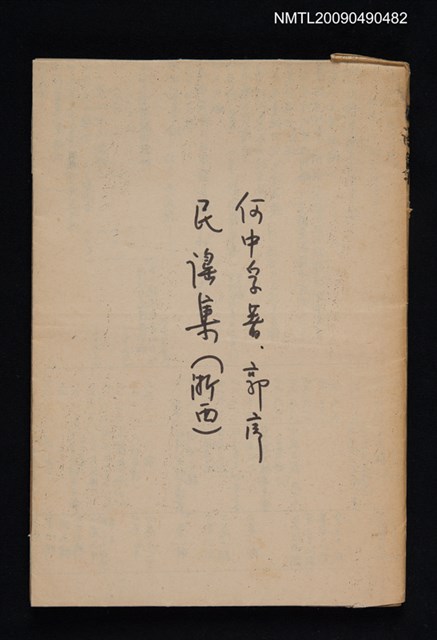 NMTL20090490482
何中孚著、郭序
民謠集(浙西)